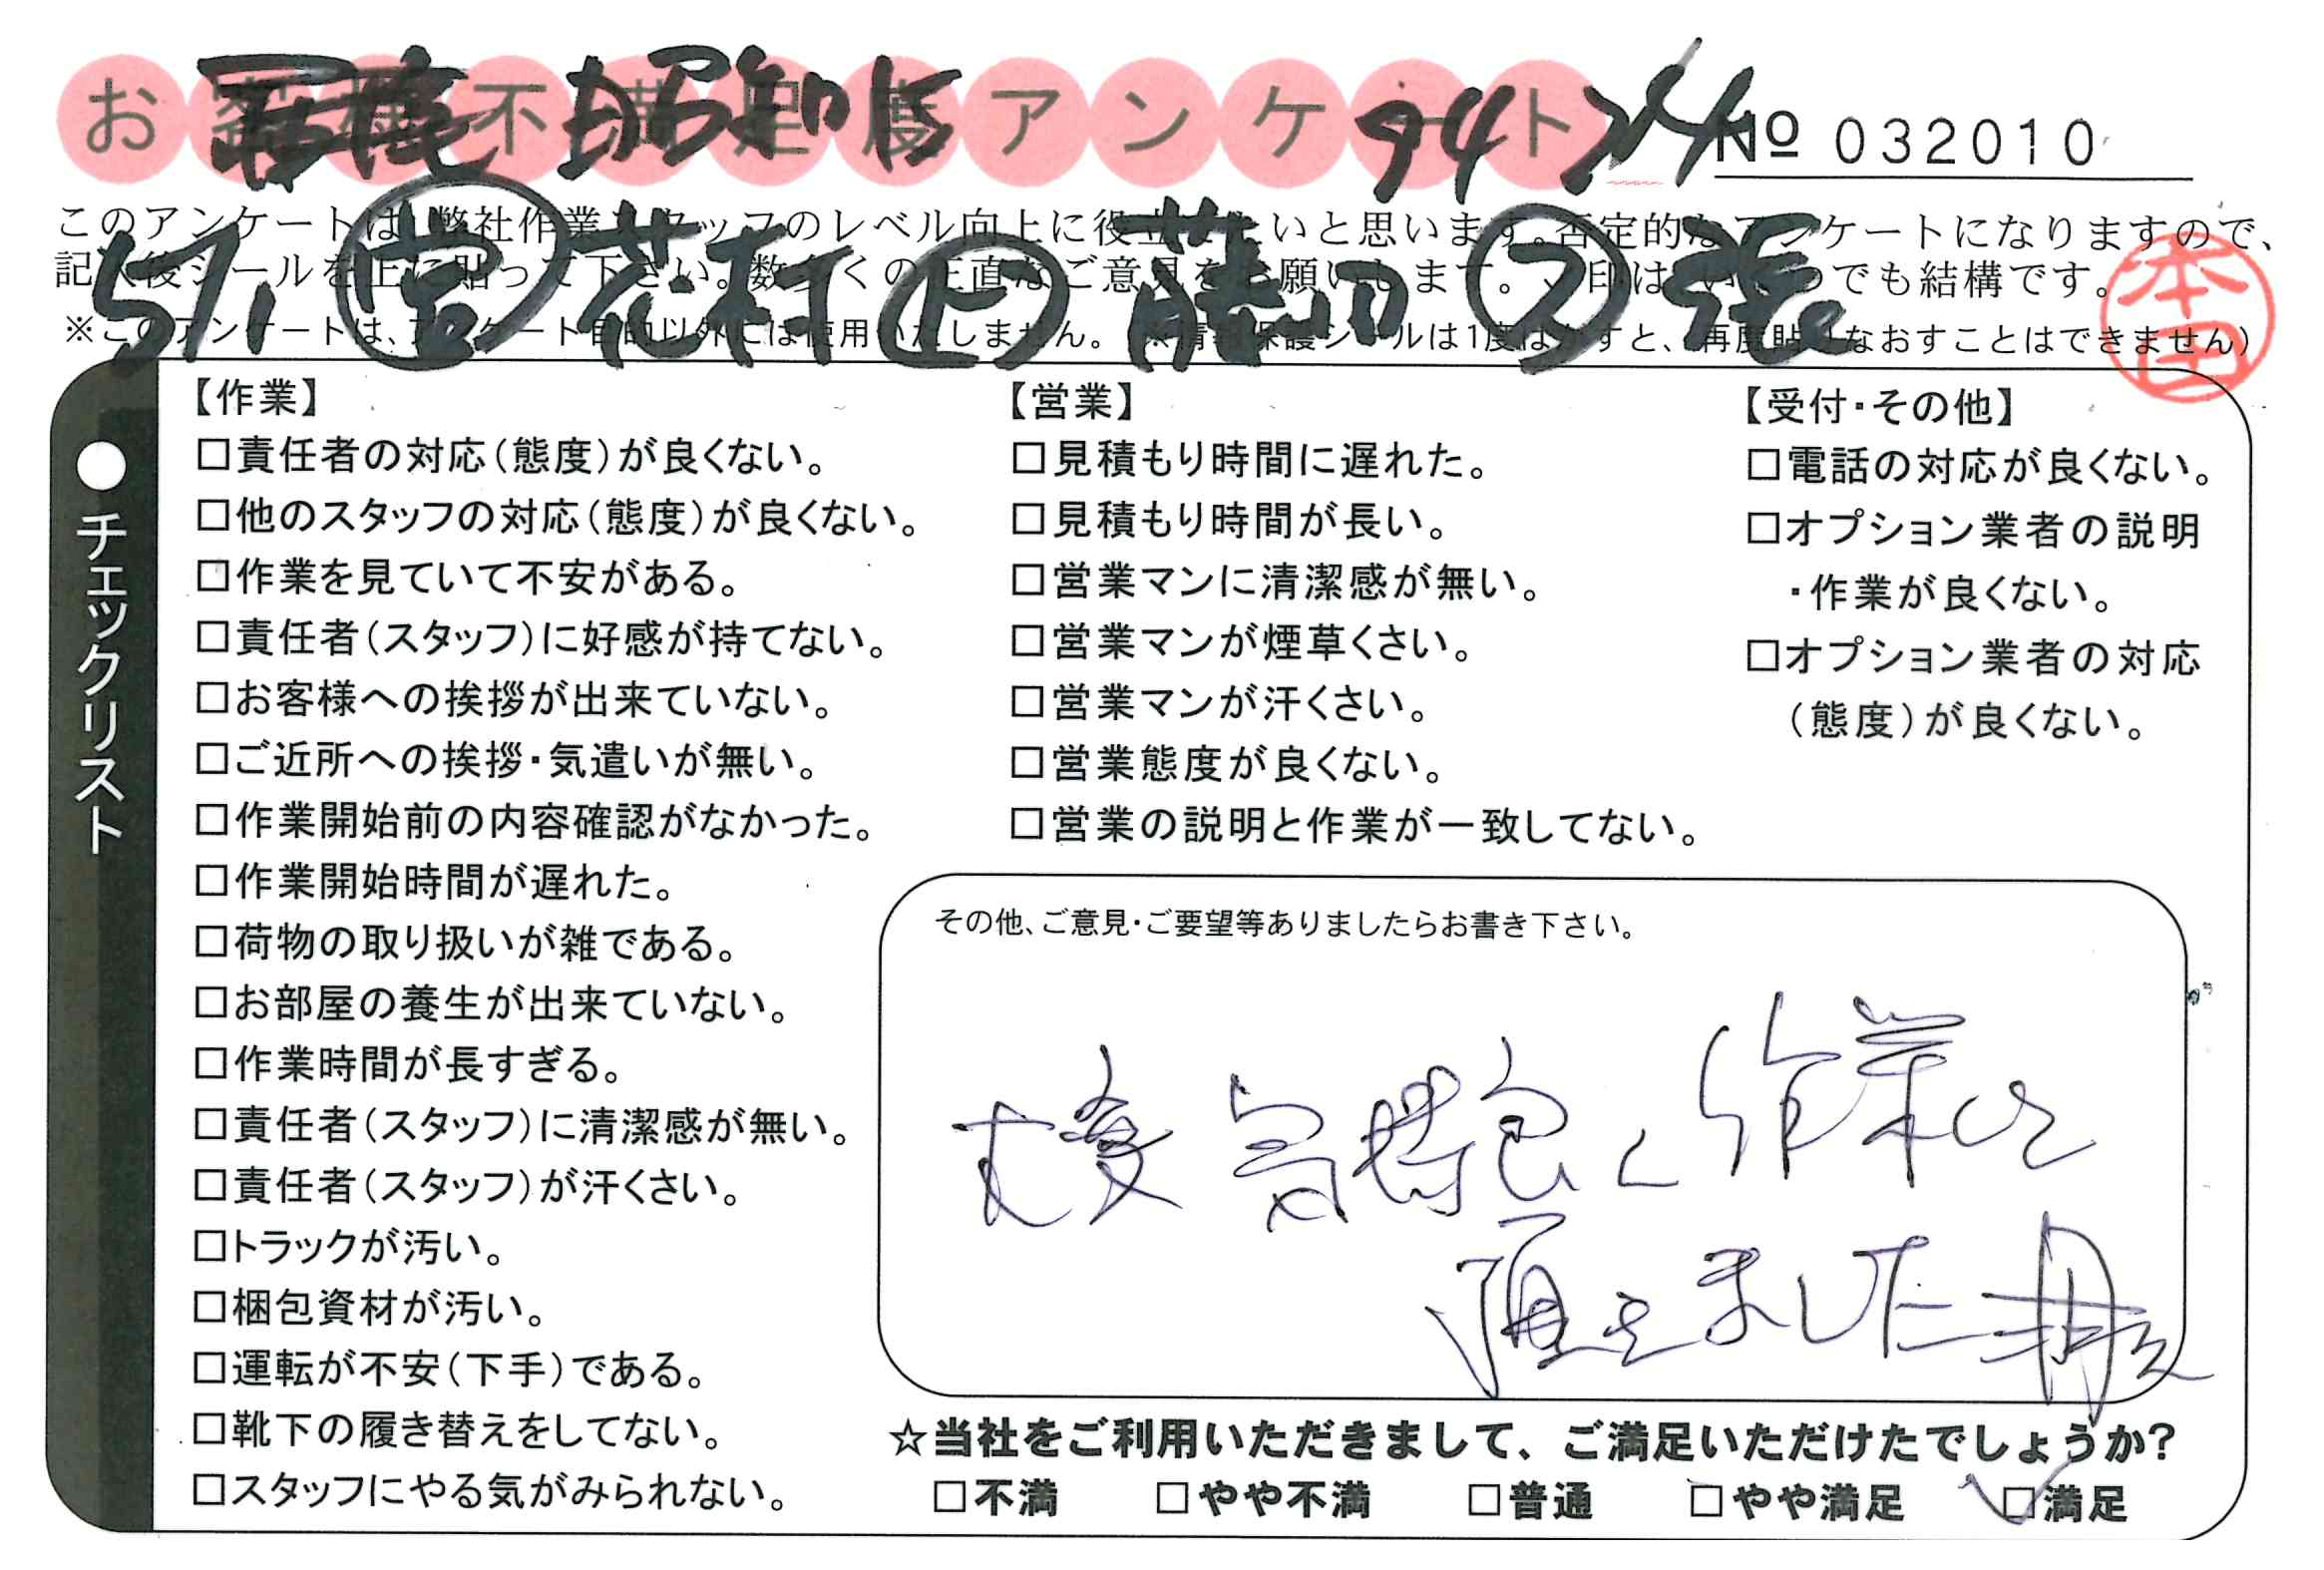 お客様不満足度アンケート
№ 032010
このアンケートは、弊社作業スタッフのレベル向上に役立てたいと思います。否定的なアンケートになりますので、
記入後シールを上に貼って下さい。数多くの正直なご意見をお願いします。✓印はいくつでも結構です。
※このアンケートは、アンケート目的以外には使用いたしません。(※情報保護シールは1度はがすと、再度貼りなおすことはできません)
571 営 花村 ㊦ 藤田 ㋜ 張
本田
●チェックリスト
【作業】
□責任者の対応(態度)が良くない。
□他のスタッフの対応(態度)が良くない。
□作業を見ていて不安がある。
□責任者(スタッフ)に好感が持てない。
□お客様への挨拶が出来ていない。
□ご近所への挨拶・気遣いが無い。
□作業開始前の内容確認がなかった。
□作業開始時間が遅れた。
□荷物の取り扱いが雑である。
□お部屋の養生が出来ていない。
□作業時間が長すぎる。
□責任者(スタッフ)に清潔感が無い。
□責任者(スタッフ)が汗くさい。
□トラックが汚い。
□梱包資材が汚い。
□運転が不安(下手)である。
□靴下の履き替えをしてない。
□スタッフにやる気がみられない。
【営業】
□見積もり時間に遅れた。
□見積もり時間が長い。
□営業マンに清潔感が無い。
□営業マンが煙草くさい。
□営業マンが汗くさい。
□営業態度が良くない。
□営業の説明と作業が一致してない。
【受付・その他】
□電話の対応が良くない。
□オプション業者の説明
・作業が良くない。
□オプション業者の対応
(態度)が良くない。
その他、ご意見・ご要望等ありましたらお書き下さい。
大変気持良く作業して
頂きました
☆当社をご利用いただきまして、ご満足いただけたでしょうか?
□不満 □やや不満 □普通 □やや満足 ☑満足